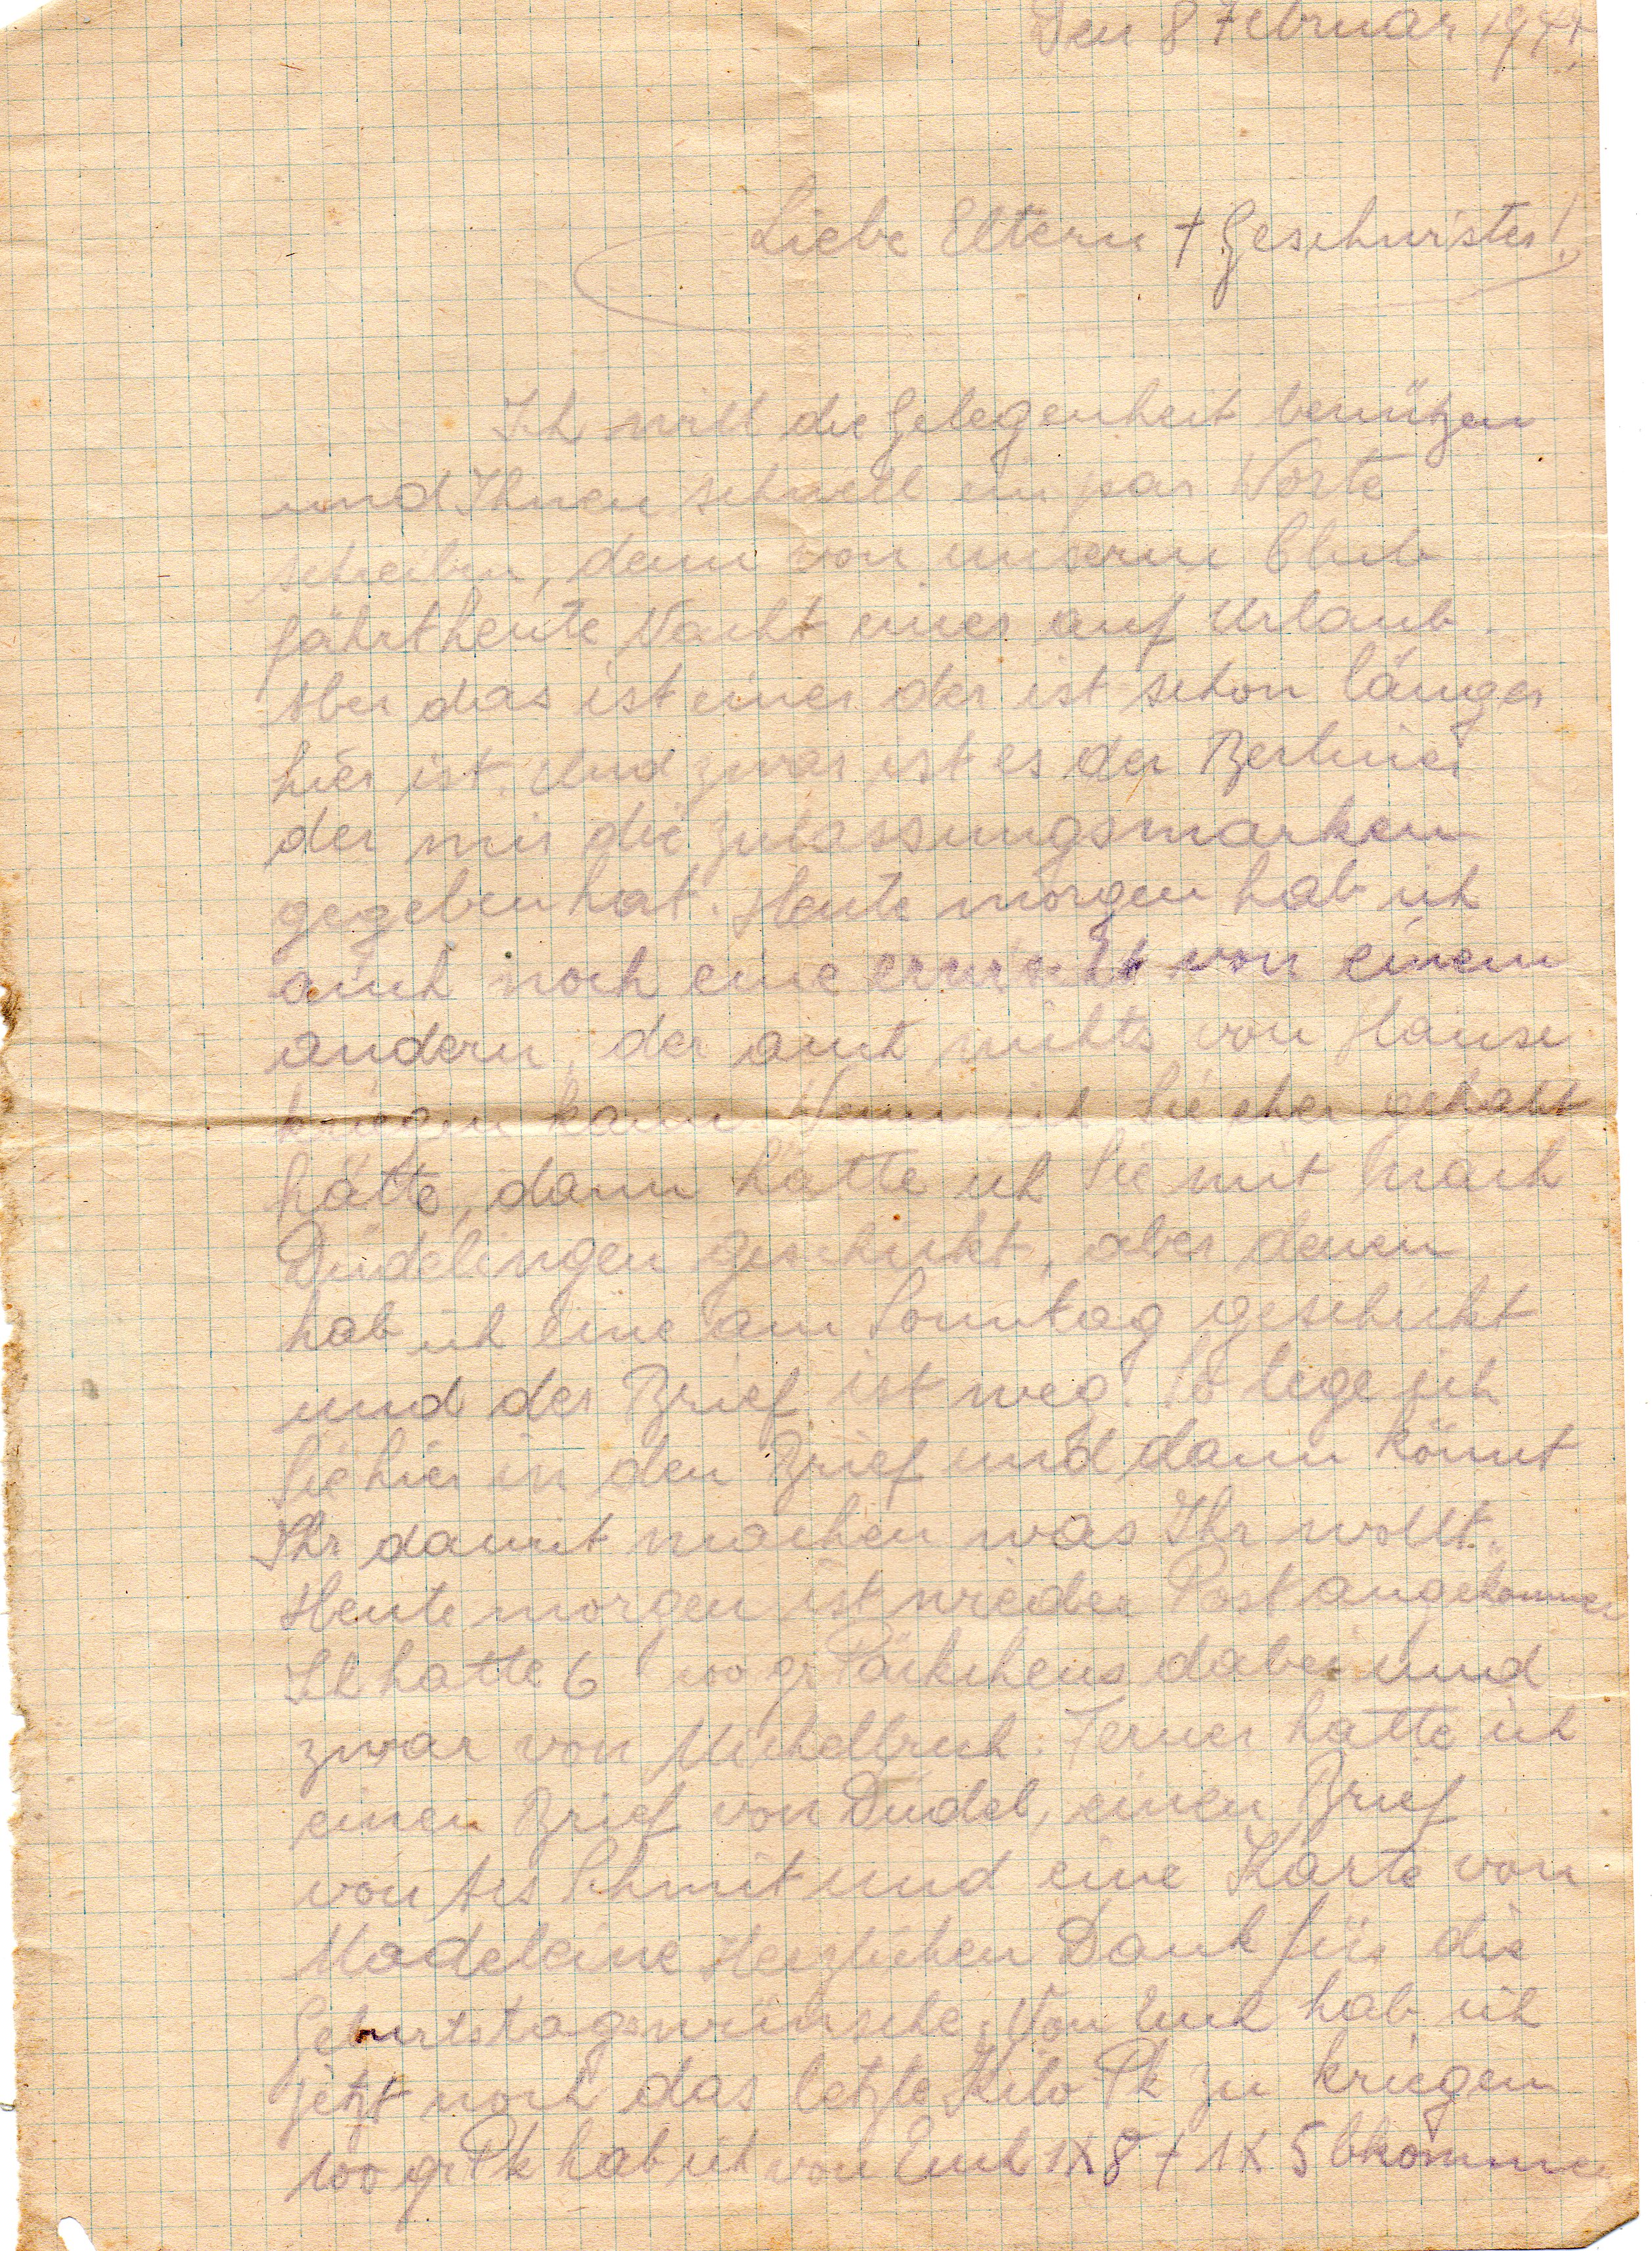 Den 8 Februar 1944.
Liebe Eltern + Geschwister!
Ich will die Gelegenheit benützen
und Ihnen schnell ein par Worte
schreiben, denn von unserm Club
fährt heute Nacht einer auf Urlaub.
Aber das ist einer der ist schon länger
hier ist. Und zwar ist es der Berliner
der mir die Zulassungsmarken
gegeben hat. Heute morgen hab ich
auch noch eine erwischt von einem
andern, der auch nichts von Hause
kriegen kann. Wenn ich Sie eher gehabt
hätte, dann hätte ich Sie mit nach
Düdelingen geschickt, aber denen
hab ich eine am Sonntag geschickt
und der Brief ist weg. So lege ich
Sie hier in den Brief und dann könnt
Ihr damit machen was Ihr wollt.
Heute morgen ist wieder Post angekommen
Ich hatte 6 100 gr Päckchens dabei und
zwar von Michelbruch. Ferner hatte ich
einen Brief von Düdel, einen Brief
von Schmit und eine Karte von
Madeleine Herzlichen Dank für die
Geburtstagswünsche. Von Euch hab ich
jetzt noch das letzte Kilo Pk zu kriegen
100 gr Pk hab ich von Euch 1X8 + 1X5 bkommen